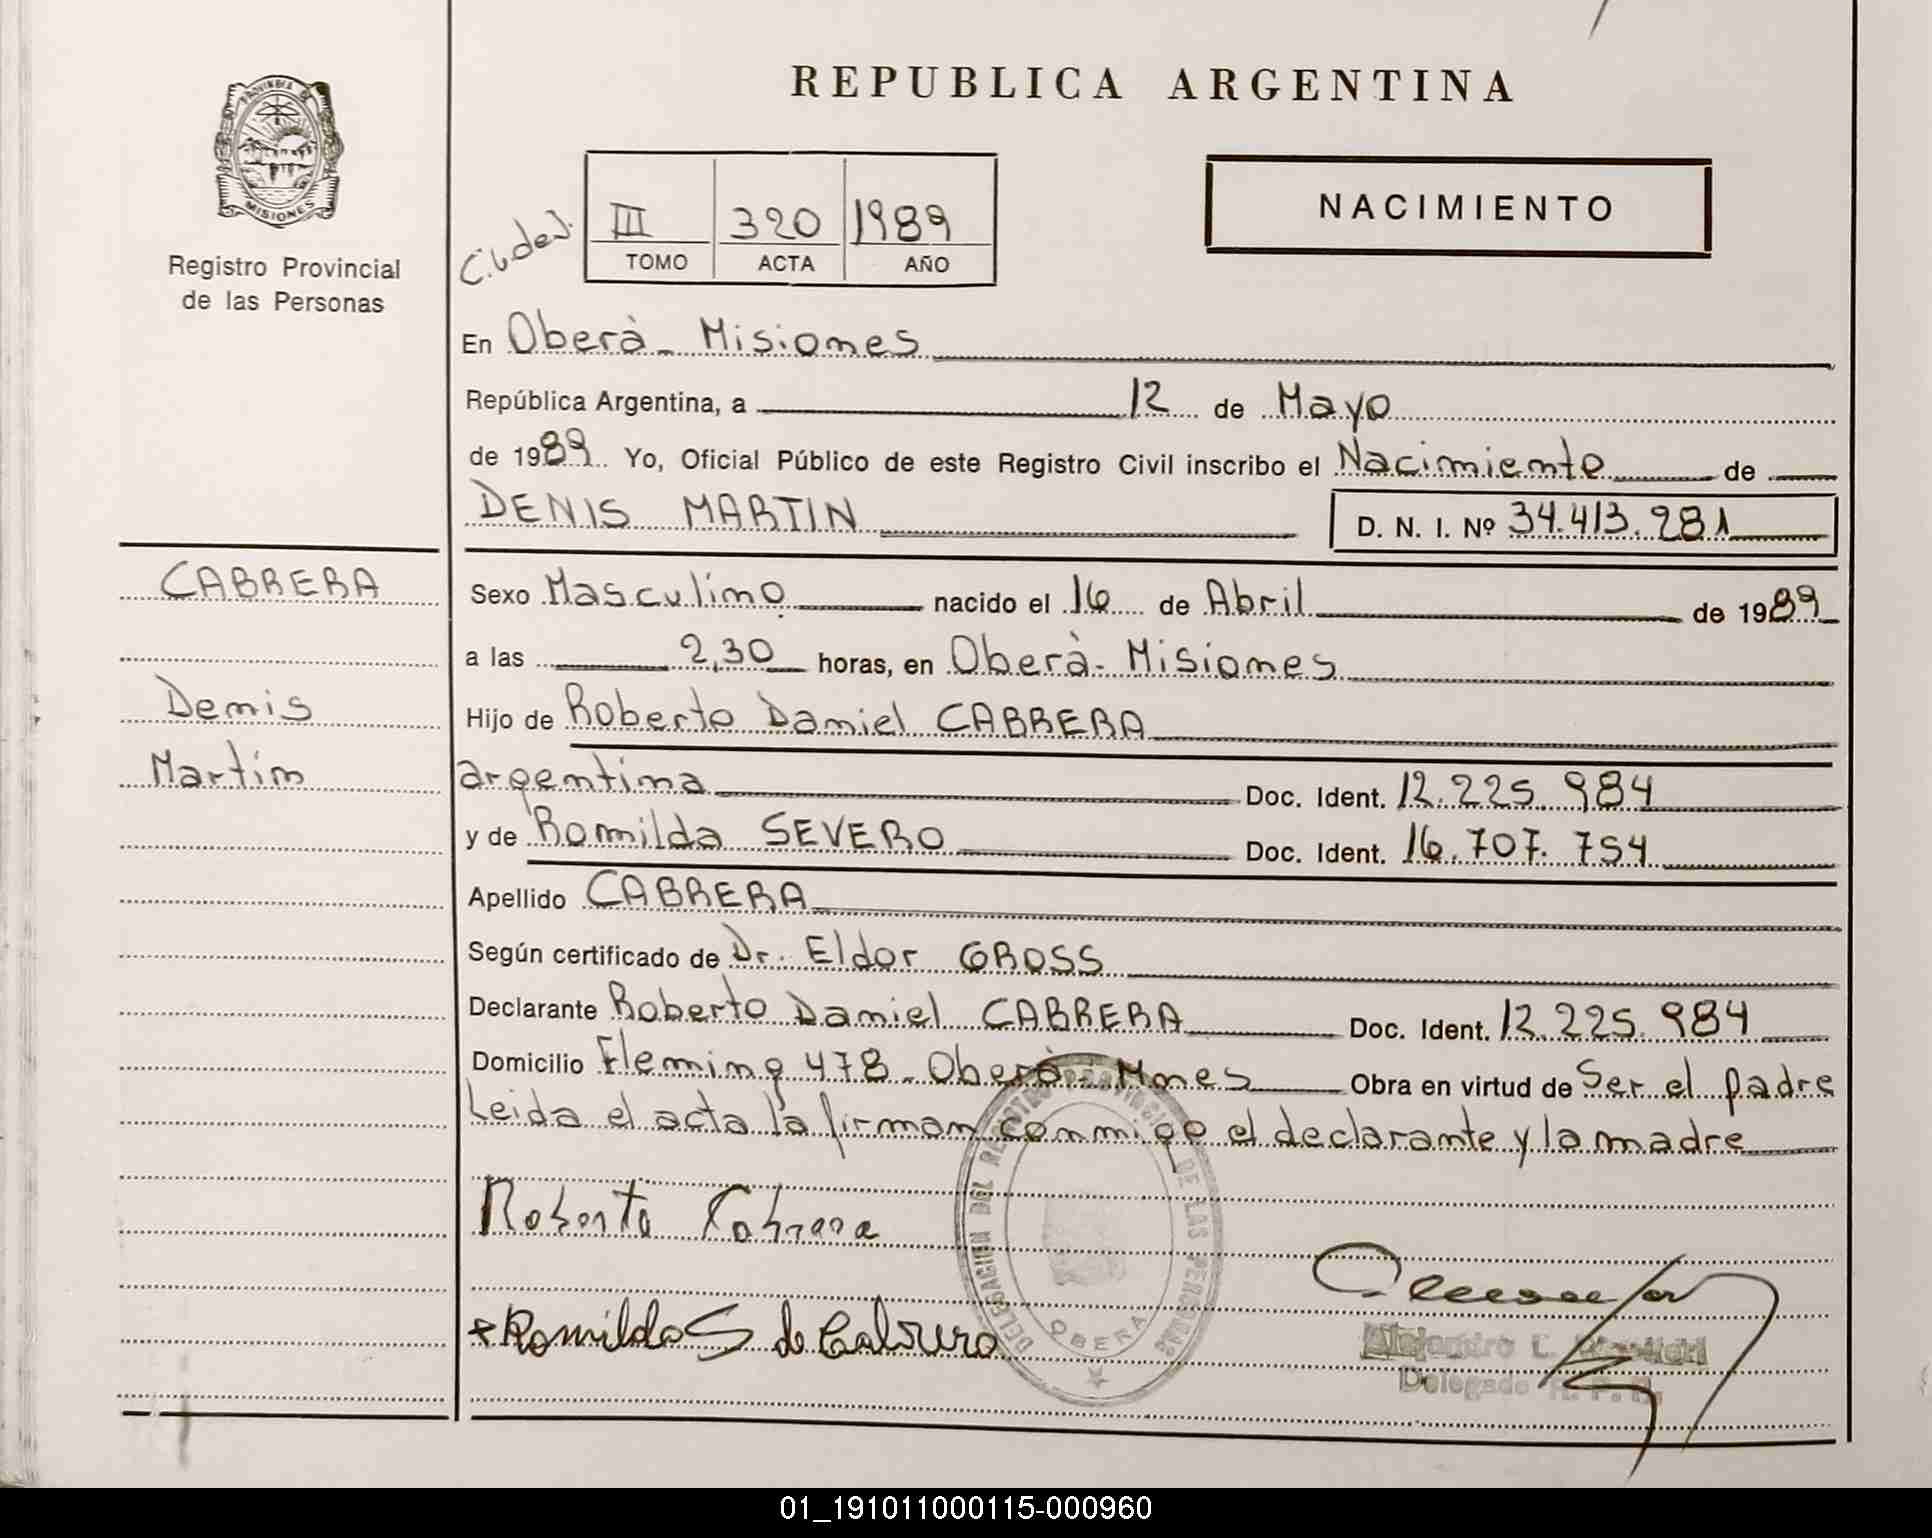 REPUBLICA ARGENTINA
PROVINCIA DE
MISIONES
Registro Provincial
de las Personas
NACIMIENTO
Ciudad.
III 320 1989
TOMO ACTA AÑO
En Oberà - Misiones
República Argentina, a 12 de Mayo
de 1989 Yo, Oficial Público de este Registro Civil inscribo el Nacimiento de
DENIS MARTIN D. N. I. Nº 34.413.281
CABRERA
Denis
Martin
Sexo Masculino nacido el 16 de Abril de 1989
a las 2,30 horas, en Oberà - Misiones
Hijo de Roberto Daniel CABRERA
argentina Doc. Ident. 12.225.984
y de Romilda SEVERO Doc. Ident. 16.707.754
Apellido CABRERA
Según certificado de Dr. Eldor GROSS
Declarante Roberto Daniel CABRERA Doc. Ident. 12.225.984
Domicilio Fleming 478 - Oberà - Mnes Obra en virtud de Ser el padre
Leida el acta la firman conmigo el declarante y la madre
Roberto Cabrera
Romilda S de Cabrera
DELEGACION DEL REGISTRO PROVINCIAL DE LAS PERSONAS
OBERA
Alejandro L.
Delegado R. P. P.
01_191011000115-000960